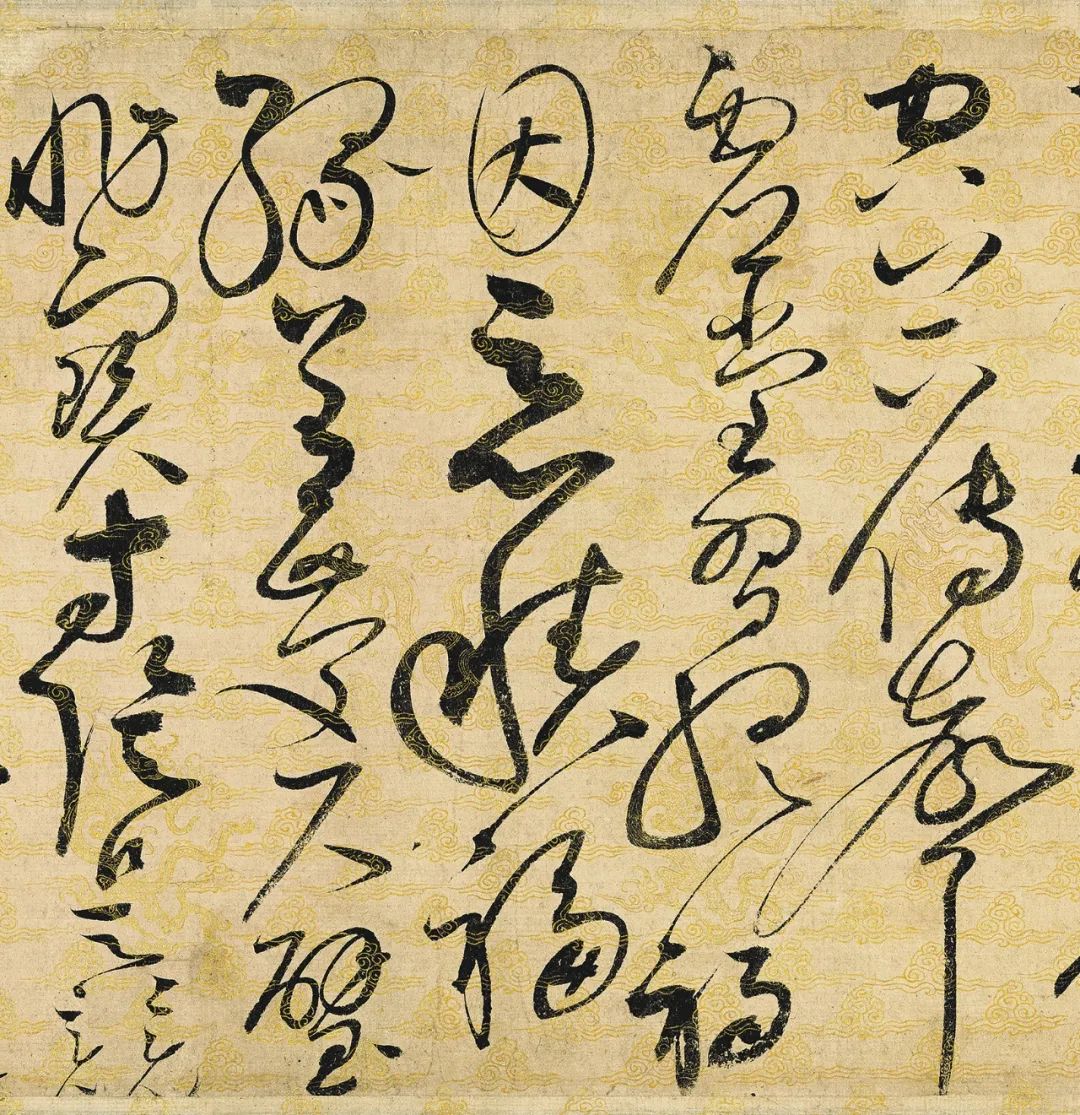 空谷傳聲
虛堂習聽禍
因惡積福
緣善慶尺璧
非寶寸陰是競